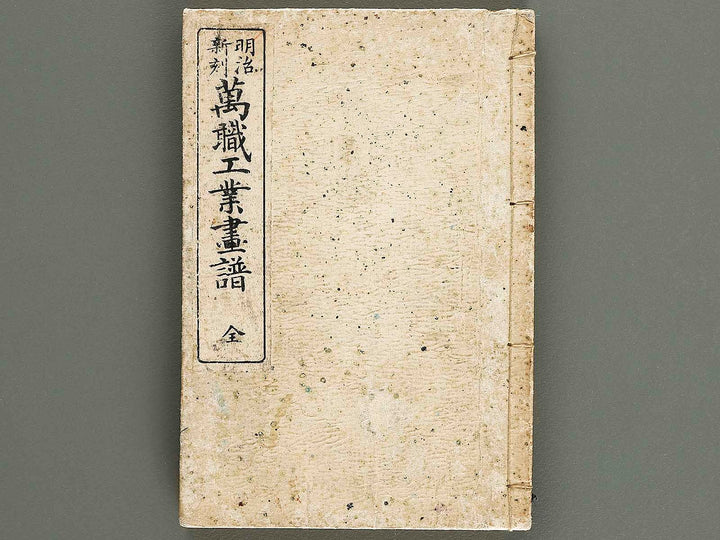 明治
新刻
萬職工業畫譜
全